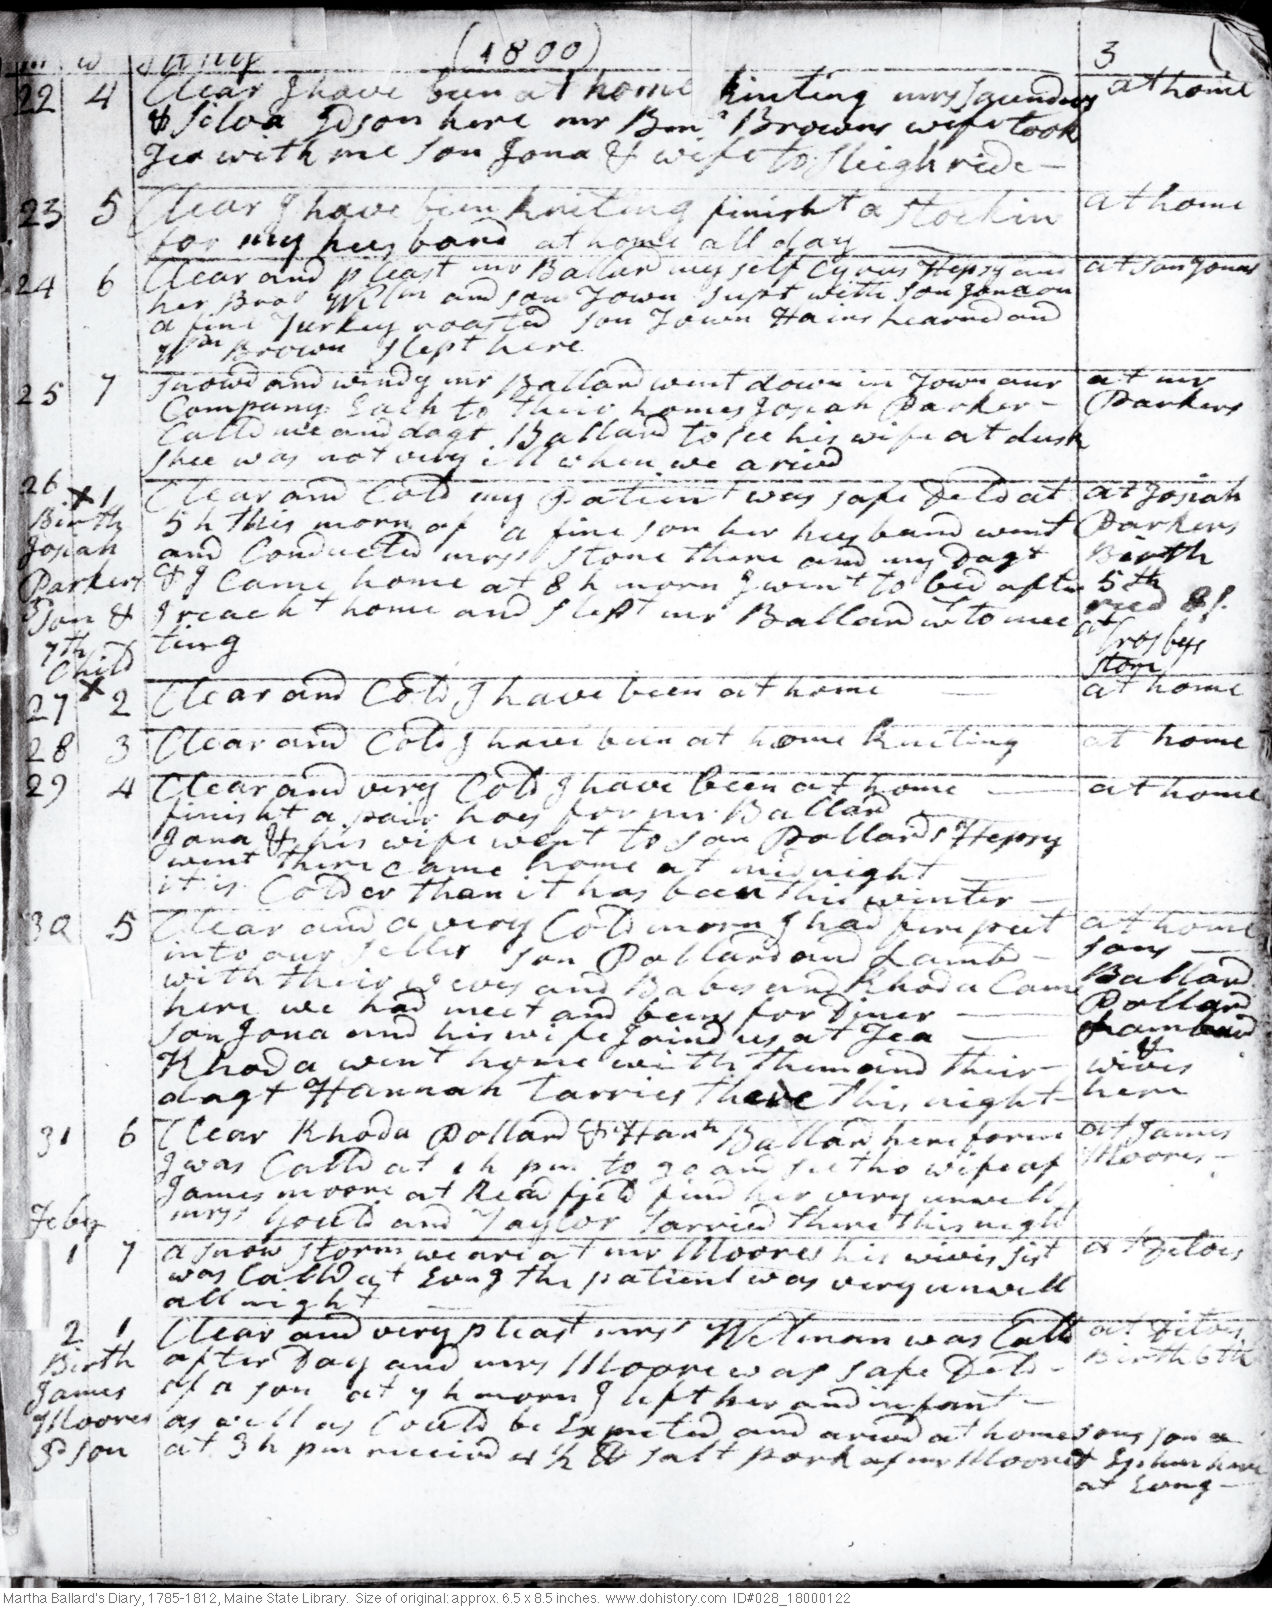 m w Jany (1800) 3
22 4 Clear I have been at home kniting mrs Saunders at home
& Silva Edson here mr Benjn Browns wife took
Tea with me son Jona & wife to Sleigh ride –
23 5 Clear I have been kniting finisht a Stockin at home
for my husband at home all day —
24 6 Clear and pleast mr Ballard my self Cyrus Hepsy and at son Jonas
her Broar Wilm and son Town supt with son Jona on
a fine Turkey roasted son Town Hains Learned and
Wm Brown Slept here
25 7 Snowd and windy mr Ballard went down in Town our at mr
Company Each to their homes Josiah Parker – Parkers
Calld me and dagt Ballard to see his wife at dusk
shee was not very ill when we arivd
26 x 1 Clear and Cold my Patient was safe Deld at at Josiah
Birth 5 h this morng of a fine son her husband went Parkers
Josiah and Conducted mrss Stone there and my Dagt Birth
Parkers & I Came home at 8 h morn I went to bed after 5th
Son & I reacht home and slept mr Ballard w to mee recd 8/.
7th ting at Crosbys
Child store
27 x 2 Clear and Cold I have been at home — at home
28 3 Clear and Cold I have been at home kniting at home
29 4 Clear and very Cold I have been at home — at home
finisht a pair hoes for mr Ballard
Jona & his wife went to son Pollards Hepsy
went there came home at midnight —
it is Colder than it has been this winter –
30 5 Clear and a very Cold morn I had fire put at home
into our Seller son Pollard and Lambd – sons –
with their wives and Babes and Rhoda Came Ballard
here we had meet and beens for Diner — Pollard
son Jona and his wife Joind us at Tea — Lambard
Rhoda went home with them and their – & wives
dagt Hannah tarries there this night – here
31 6 Clear Rhoda Pollard & Hanh Ballard here forin at James
I was Calld at 1 h pm to go and see the wife of Moores –
James moore at Readfield find her very unwell
Feby mrss Gould and Taylor tarried there this night
1 7 a snow storm we are at mr Moores his wives sist at Ditoes
was Calld at Evng the patient was very unwell
all night —
2 1 Clear and very pleast mrss Welman was Calld at Ditos
Birth after Day and mrs Moore was safe Deld – Birth 6th
James of a son at 9 h morn I left her and infant –
Moores as well as Could be Expected and arivd at home sons Jon a
3d son at 3 h pm received salt pork of mr Moore & Ephm here
at Evng –
Martha Ballard's Diary, 1785-1812, Maine State Library. Size of original: approx. 6.5 x 8.5 inches. www.dohistory.com ID#028_18000122